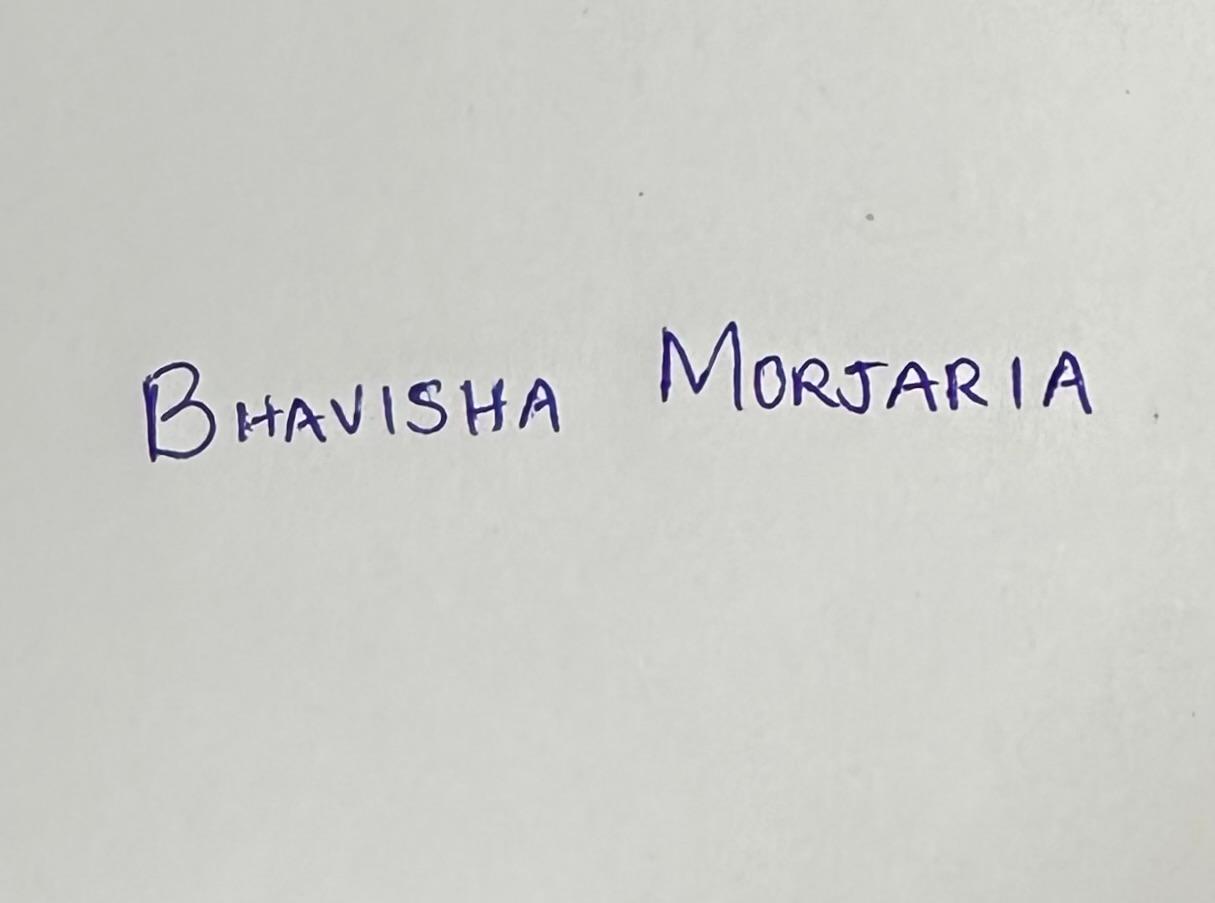 BHAVISHA MORJARIA